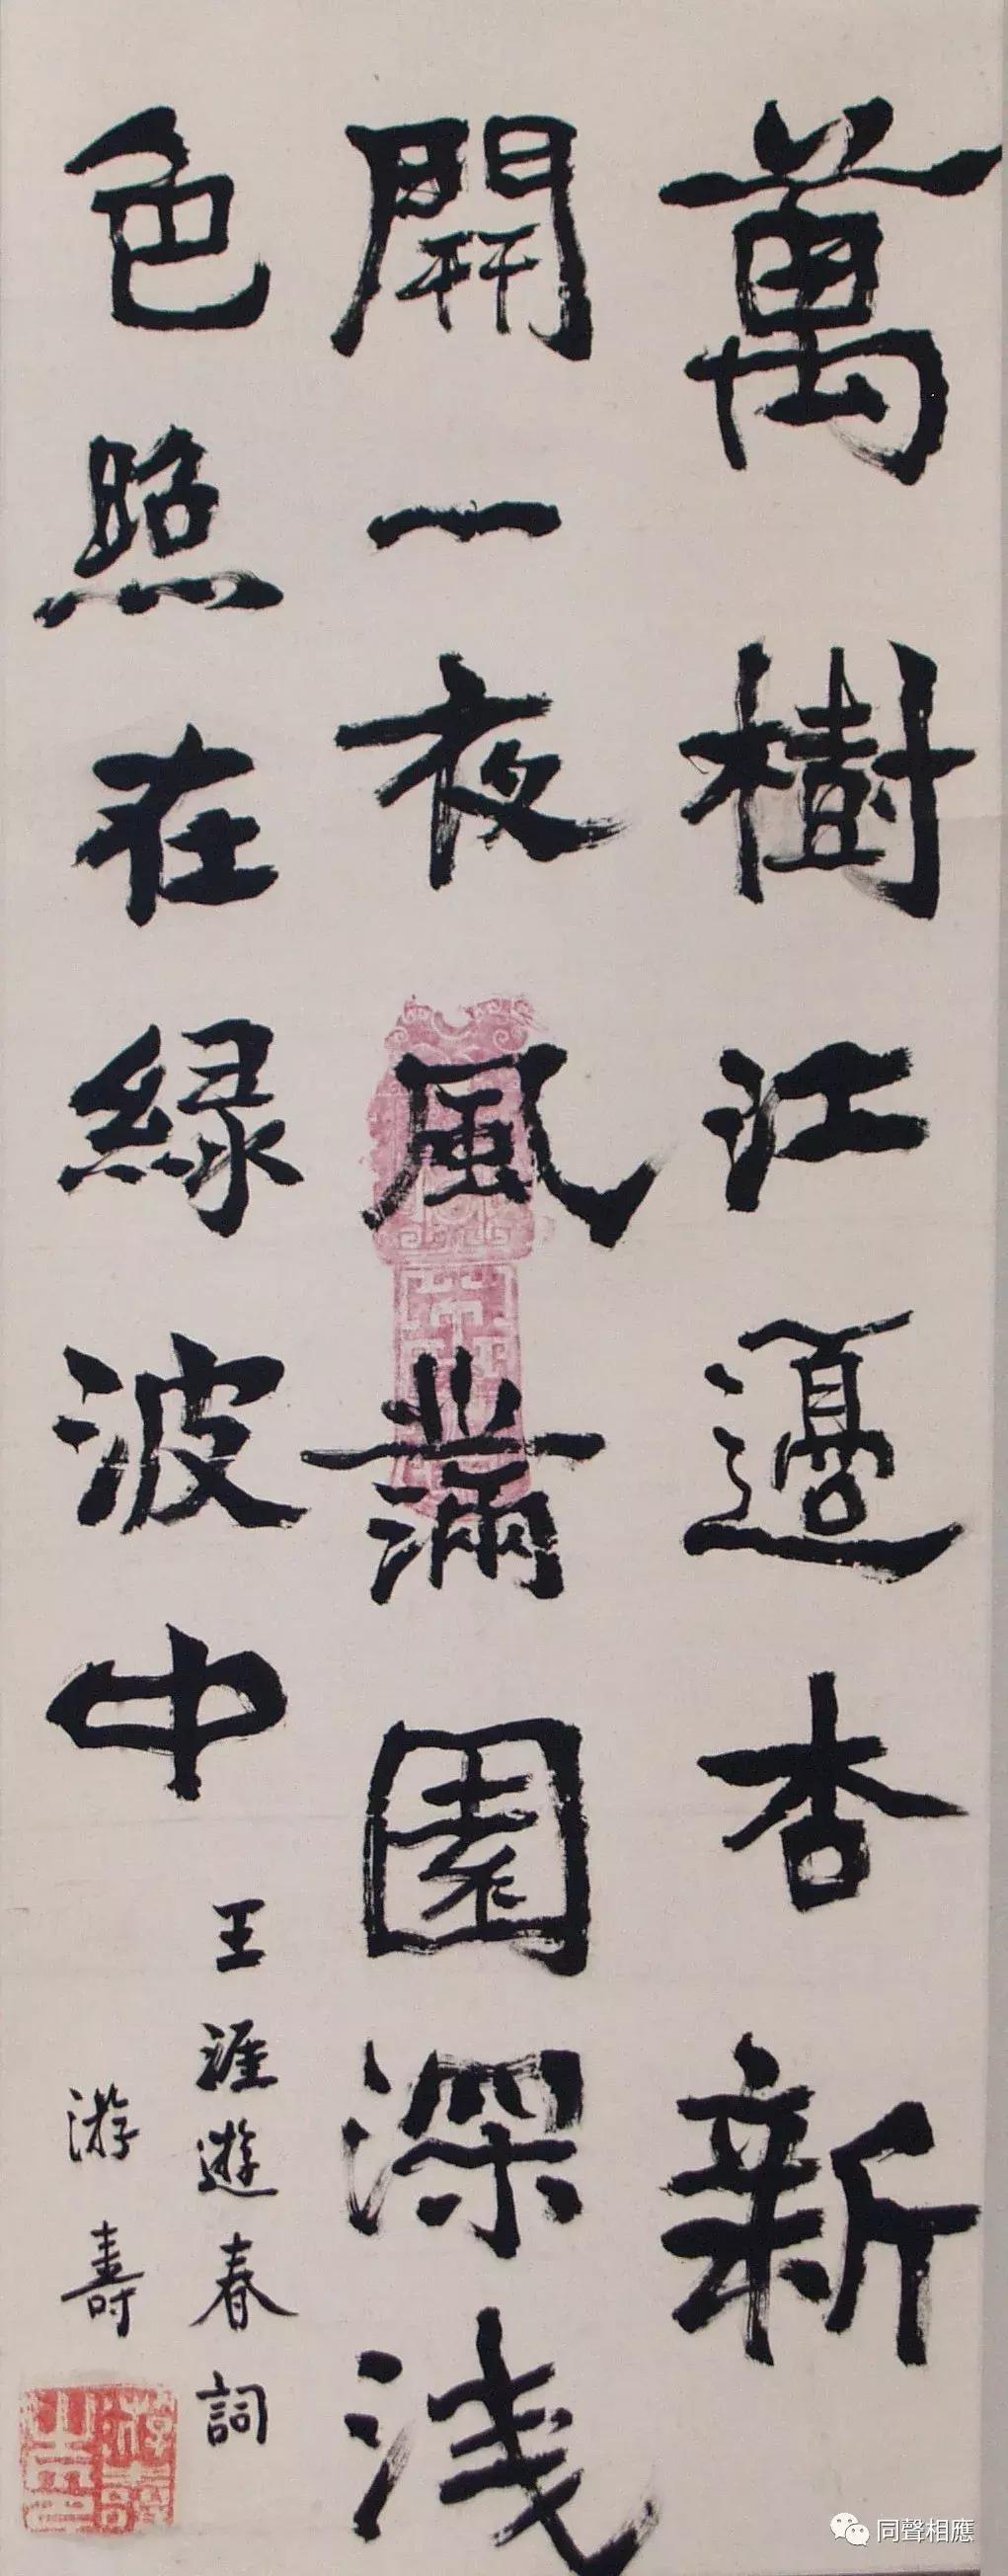 萬樹江邊杏新
開一夜風滿園深浅
色照在緑波中
王涯遊春詞
游壽
同聲相應